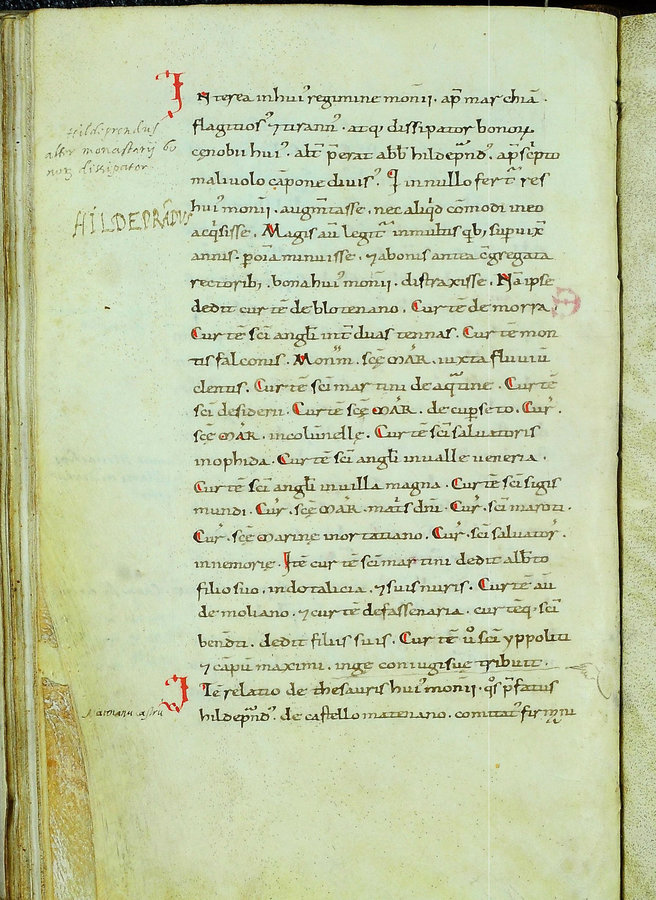 INterea inhui᾽ regimine mon̄ii . ap̄ mar chiā .
flagitios᾽ ⁊ tirann᾽ . atq; dissipator bonoꝝ
cęnobii hui᾽ . alt̄ p̄erat abb̄ hildep̄nd᾽ . ap̄ scpto
malivolo cāpone divis᾽ . I innullo fert᾽ res
hui᾽ mon̄ii . augm̄tasse . nec aliq̇d cōmodi ineo
acq̇sisse . Magis aū legit᾽ inmultis qb; supuix̄
annis . poīa minuisse . ⁊ abonis antea c̄gregata
rectorib; . bona hui᾽ mon̄ii . distraxisse . Nā ipse
dedit cur tē de blotenano . Cur tē de morra .
Cur tē sc̄i angl̄i int̄ duas tennas . Cur tē mon
tis falconis . Mon̄m . sc̄ę MAR̄ . iuxta fluuiū
clentus . Cur tē sc̄i mar tini de aq̄tine . Cur tē
sc̄i desiderii . Cur tē sc̄ę MAR̄ . de cup̄seto . Cur̄ .
sc̄ę MAR̄ . incolun̄elle . Cur tē sc̄i saluatoris
inophida . Cur tē sc̄i angl̄i inualle ueneria .
Cur tē sc̄i angl̄i inuilla magna . Cur tē sc̄i sigis
mundi . Cur̄ . sc̄ę MAR̄ . mat̄s dn̄i . Cur̄ . sc̄i maroti .
Cur̄ . sc̄ę marine inortatiano . Cur̄ . sc̄i saluator̄ .
innemorie . Itē cur tē sc̄i martini dedit alb̄to
filio suo . indotalicia . ⁊ suis nuris . Cur tē aū
de moliano . ⁊ cur tē defassenaria . cur tēq; sc̄i
bened̄ti . dedit filiis suis . Cur tē ů sc̄i yppoliti
⁊ cāpū maximi . inge coniugisuę tribuit .
ITē relatio de thesauris hui᾽ mon̄ii . q̊s p̄fatus
hildep̄nd᾽ . de castello matenano . comitat᾽ firmani
Hildeprendus
alter monasterij bo
nor dissipator
HILDEPRĀDUS